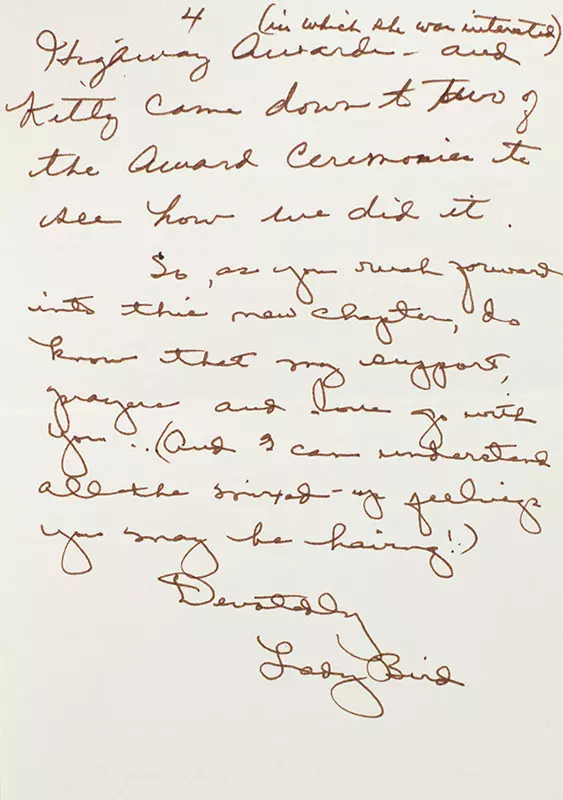 4 (in which she was interested)
Highway Awards - and
Kitty came down to two of
the Award Ceremonies to
see how we did it.
So, as you rush forward
into this new chapter, do
know that my support,
prayers and love go with
you .. (And I can understand
all the mixed-up feelings
you may be having!)
Devotedly
Lady Bird